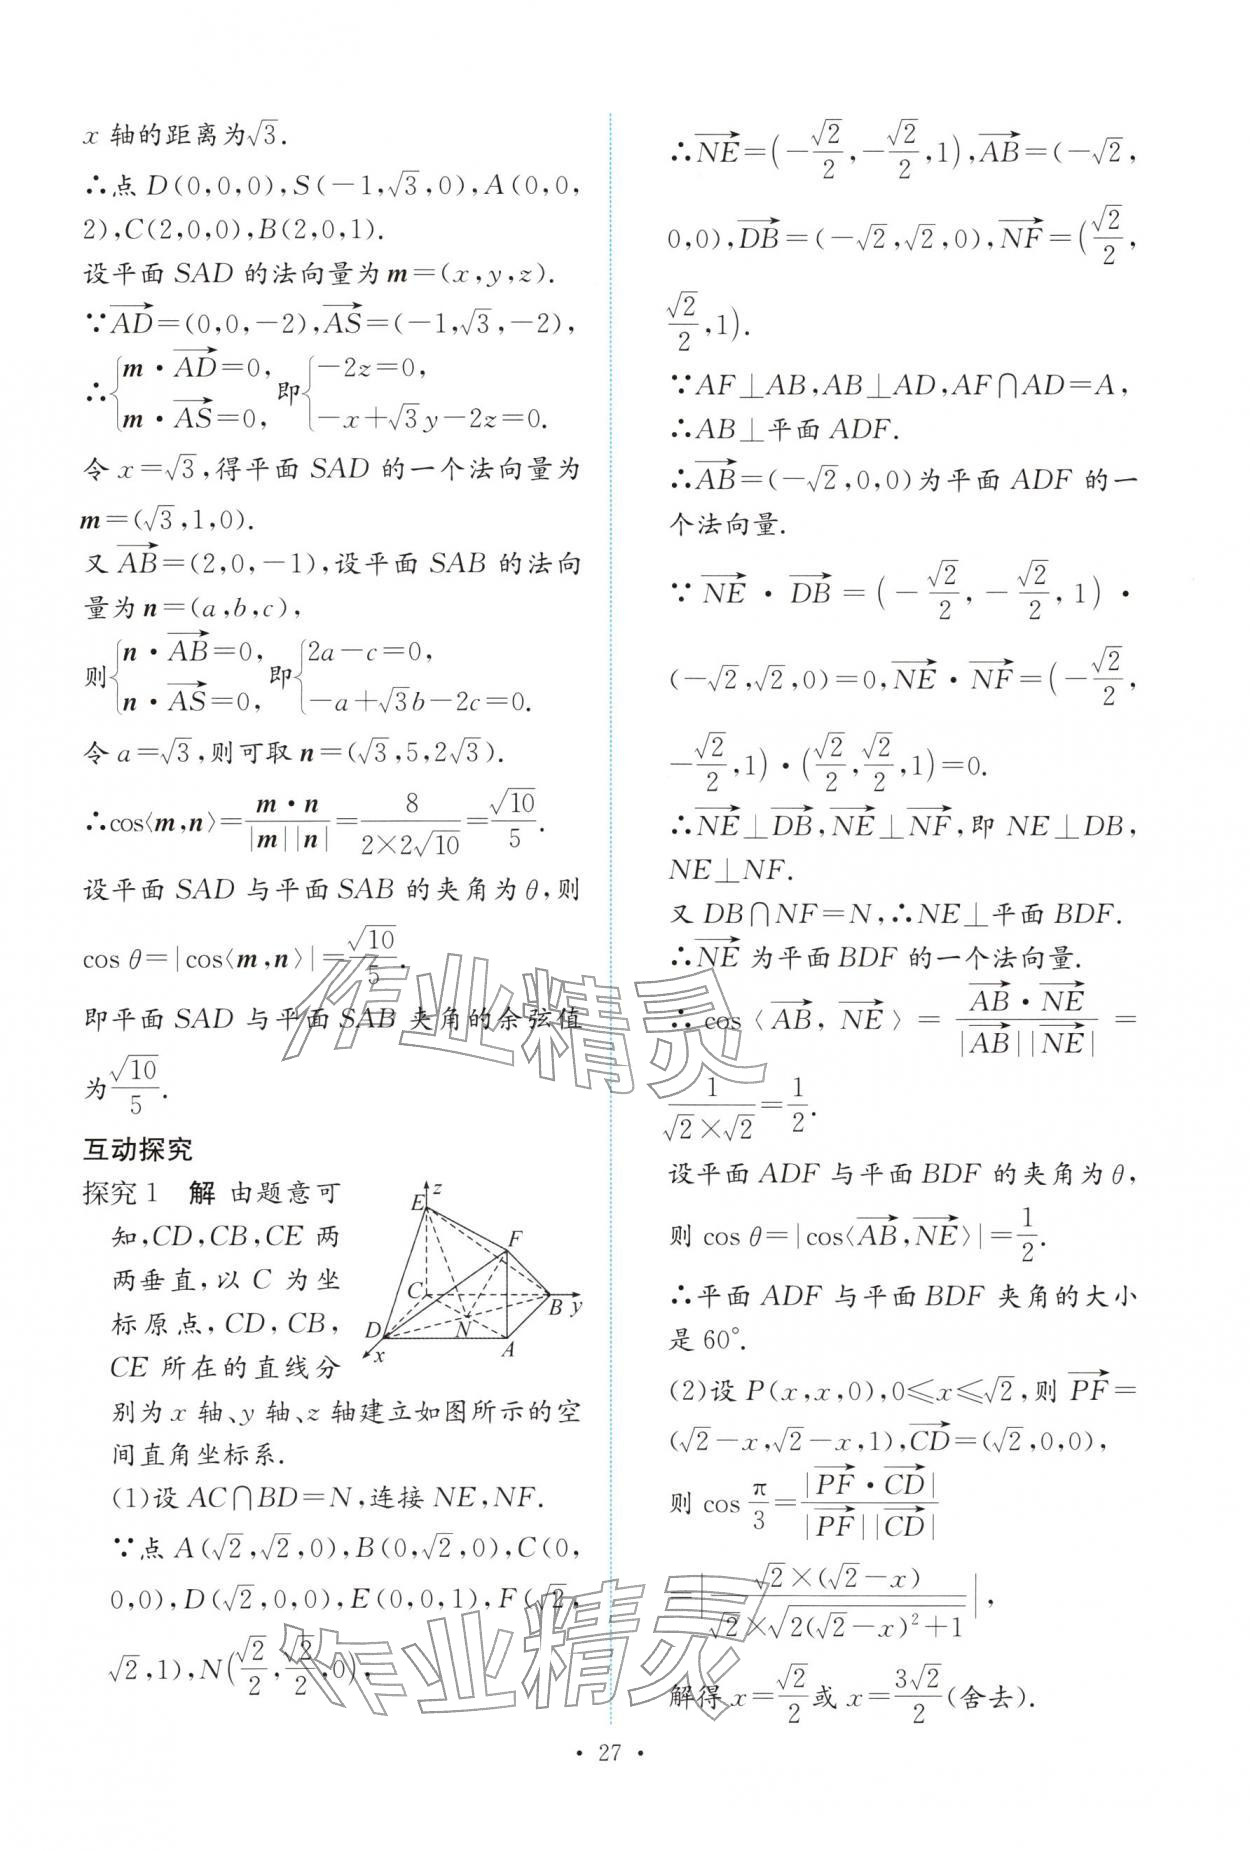 x 轴的距离为√3.
∴点 D(0,0,0),S(-1,√3,0),A(0,0,
2),C(2,0,0),B(2,0,1).
设平面 SAD 的法向量为 m=(x,y,z).
∵AD→=(0,0,-2),AS→=(-1,√3,-2),
∴{m·AD→=0, m·AS→=0, 即{-2z=0, -x+√3y-2z=0.
令 x=√3,得平面 SAD 的一个法向量为
m=(√3,1,0).
又 AB→=(2,0,-1),设平面 SAB 的法向
量为 n=(a,b,c),
则{n·AB→=0, n·AS→=0, 即{2a-c=0, -a+√3b-2c=0.
令 a=√3,则可取 n=(√3,5,2√3).
∴cos⟨m,n⟩=m·n/|m||n|=8/(2×2√10)=√10/5.
设平面 SAD 与平面 SAB 的夹角为 θ,则
cos θ=|cos⟨m,n⟩|=√10/5.
即平面 SAD 与平面 SAB 夹角的余弦值
为√10/5.
互动探究
探究 1 解 由题意可
知,CD,CB,CE 两
两垂直,以 C 为坐
标原点,CD,CB,
CE 所在的直线分
别为 x 轴、y 轴、z 轴建立如图所示的空
间直角坐标系.
z
E
F
C
B
y
D
N
A
x
(1)设 AC∩BD=N,连接 NE,NF.
∵点 A(√2,√2,0),B(0,√2,0),C(0,
0,0),D(√2,0,0),E(0,0,1),F(√2,
√2,1),N(√2/2,√2/2,0),
∴NE→=(-√2/2,-√2/2,1),AB→=(-√2,
0,0),DB→=(-√2,√2,0),NF→=(√2/2,
√2/2,1).
∵AF⊥AB,AB⊥AD,AF∩AD=A,
∴AB⊥平面 ADF.
∴AB→=(-√2,0,0)为平面 ADF 的一
个法向量.
∵NE→·DB→=(-√2/2,-√2/2,1)·
(-√2,√2,0)=0,NE→·NF→=(-√2/2,
-√2/2,1)·(√2/2,√2/2,1)=0.
∴NE→⊥DB→,NE→⊥NF→,即 NE⊥DB,
NE⊥NF.
又 DB∩NF=N,∴NE⊥平面 BDF.
∴NE→ 为平面 BDF 的一个法向量.
∴cos⟨AB→,NE→⟩=AB→·NE→/|AB→||NE→|=
1/(√2×√2)=1/2.
设平面 ADF 与平面 BDF 的夹角为 θ,
则 cos θ=|cos⟨AB→,NE→⟩|=1/2.
∴平面 ADF 与平面 BDF 夹角的大小
是 60°.
(2)设 P(x,x,0),0≤x≤√2,则 PF→=
(√2-x,√2-x,1),CD→=(√2,0,0),
则 cos π/3=|PF→·CD→|/|PF→||CD→|
=|√2×(√2-x)/(√2×√(2(√2-x)²+1))|,
解得 x=√2/2 或 x=3√2/2(舍去).
· 27 ·
作业精灵
作业精灵